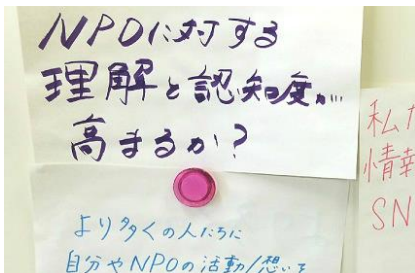 NPOに対する
理解と認知度が…
高まるか?
より多くの人たちに
自分やNPOの活動/想いを
私た
情報
SN